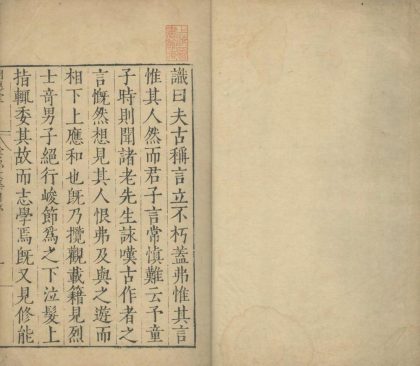 識曰夫古稱言立不朽蓋弗惟其言
惟其人然而君子言常慎難云予童
子時則聞諸老先生詠嘆古作者之
言慨然想見其人恨弗及與之遊而
相下上應和也既乃攬觀載籍見烈
士奇男子絕行峻節爲之下泣髮上
指輒委其故而志學焉既又見修能